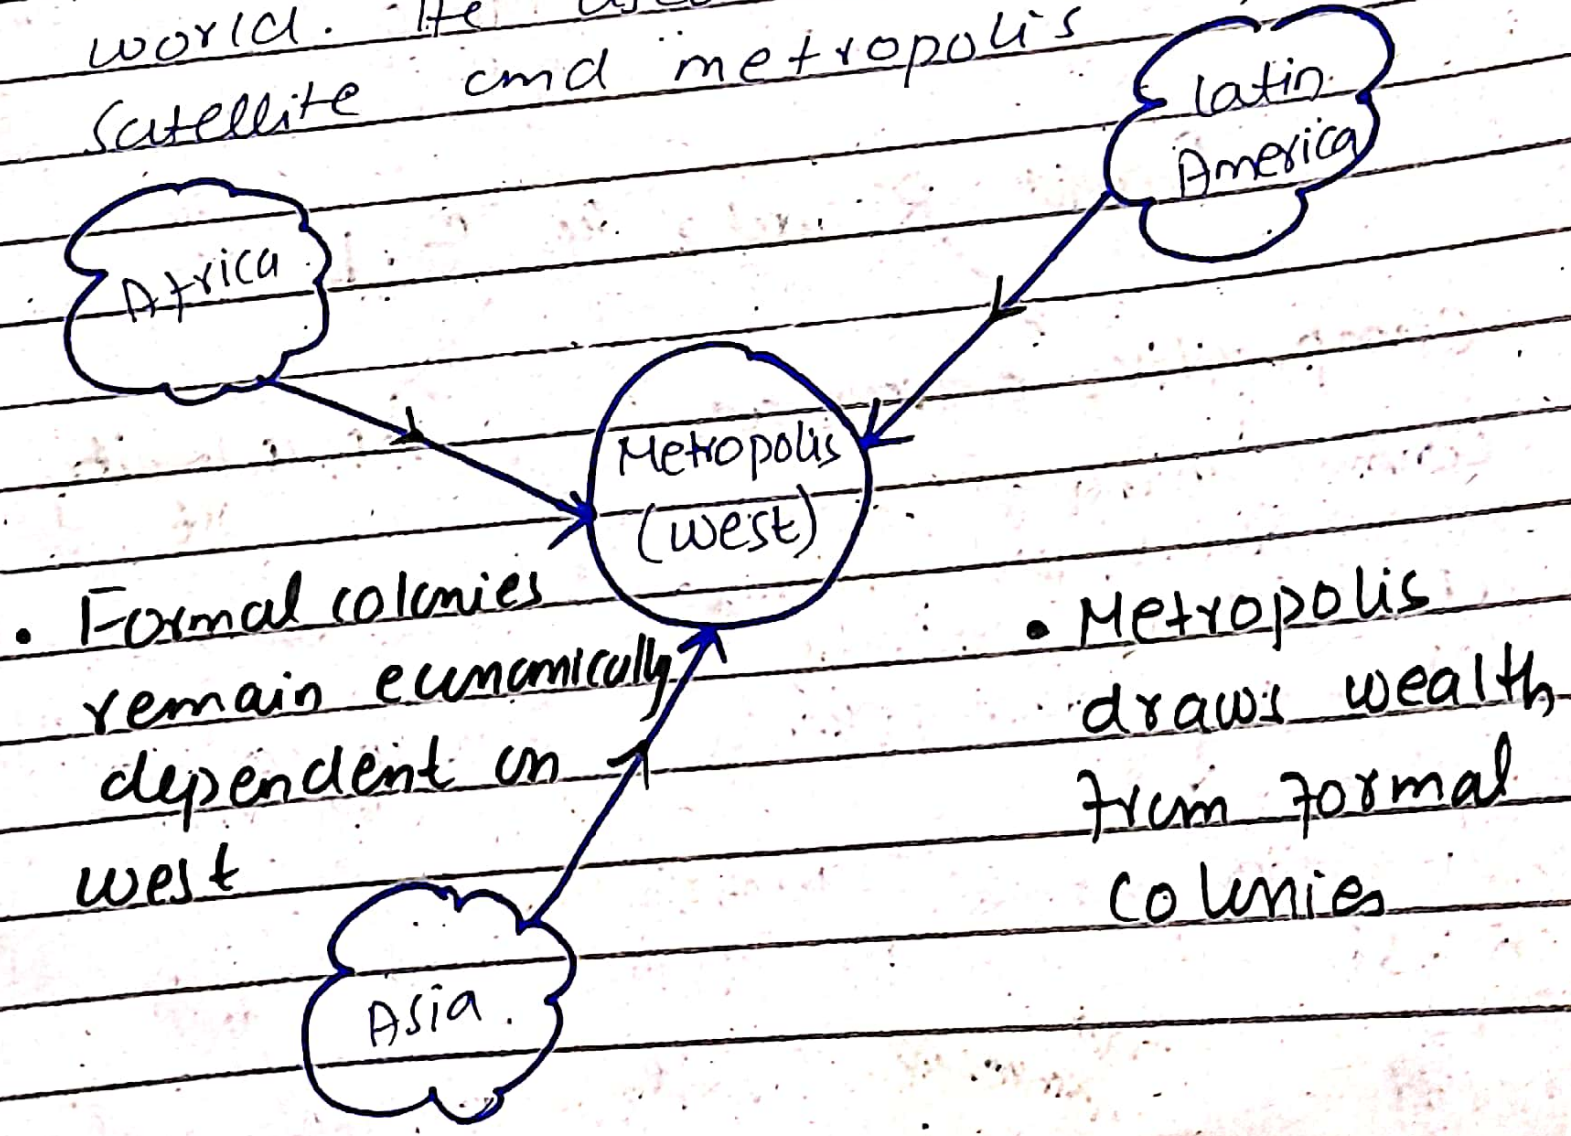 world. He
satellite and metropolis
Latin
America
Africa
Metropolis
(west)
• Formal colonies
remain economically
dependent on
west
• Metropolis
draws wealth
from formal
colonies
Asia